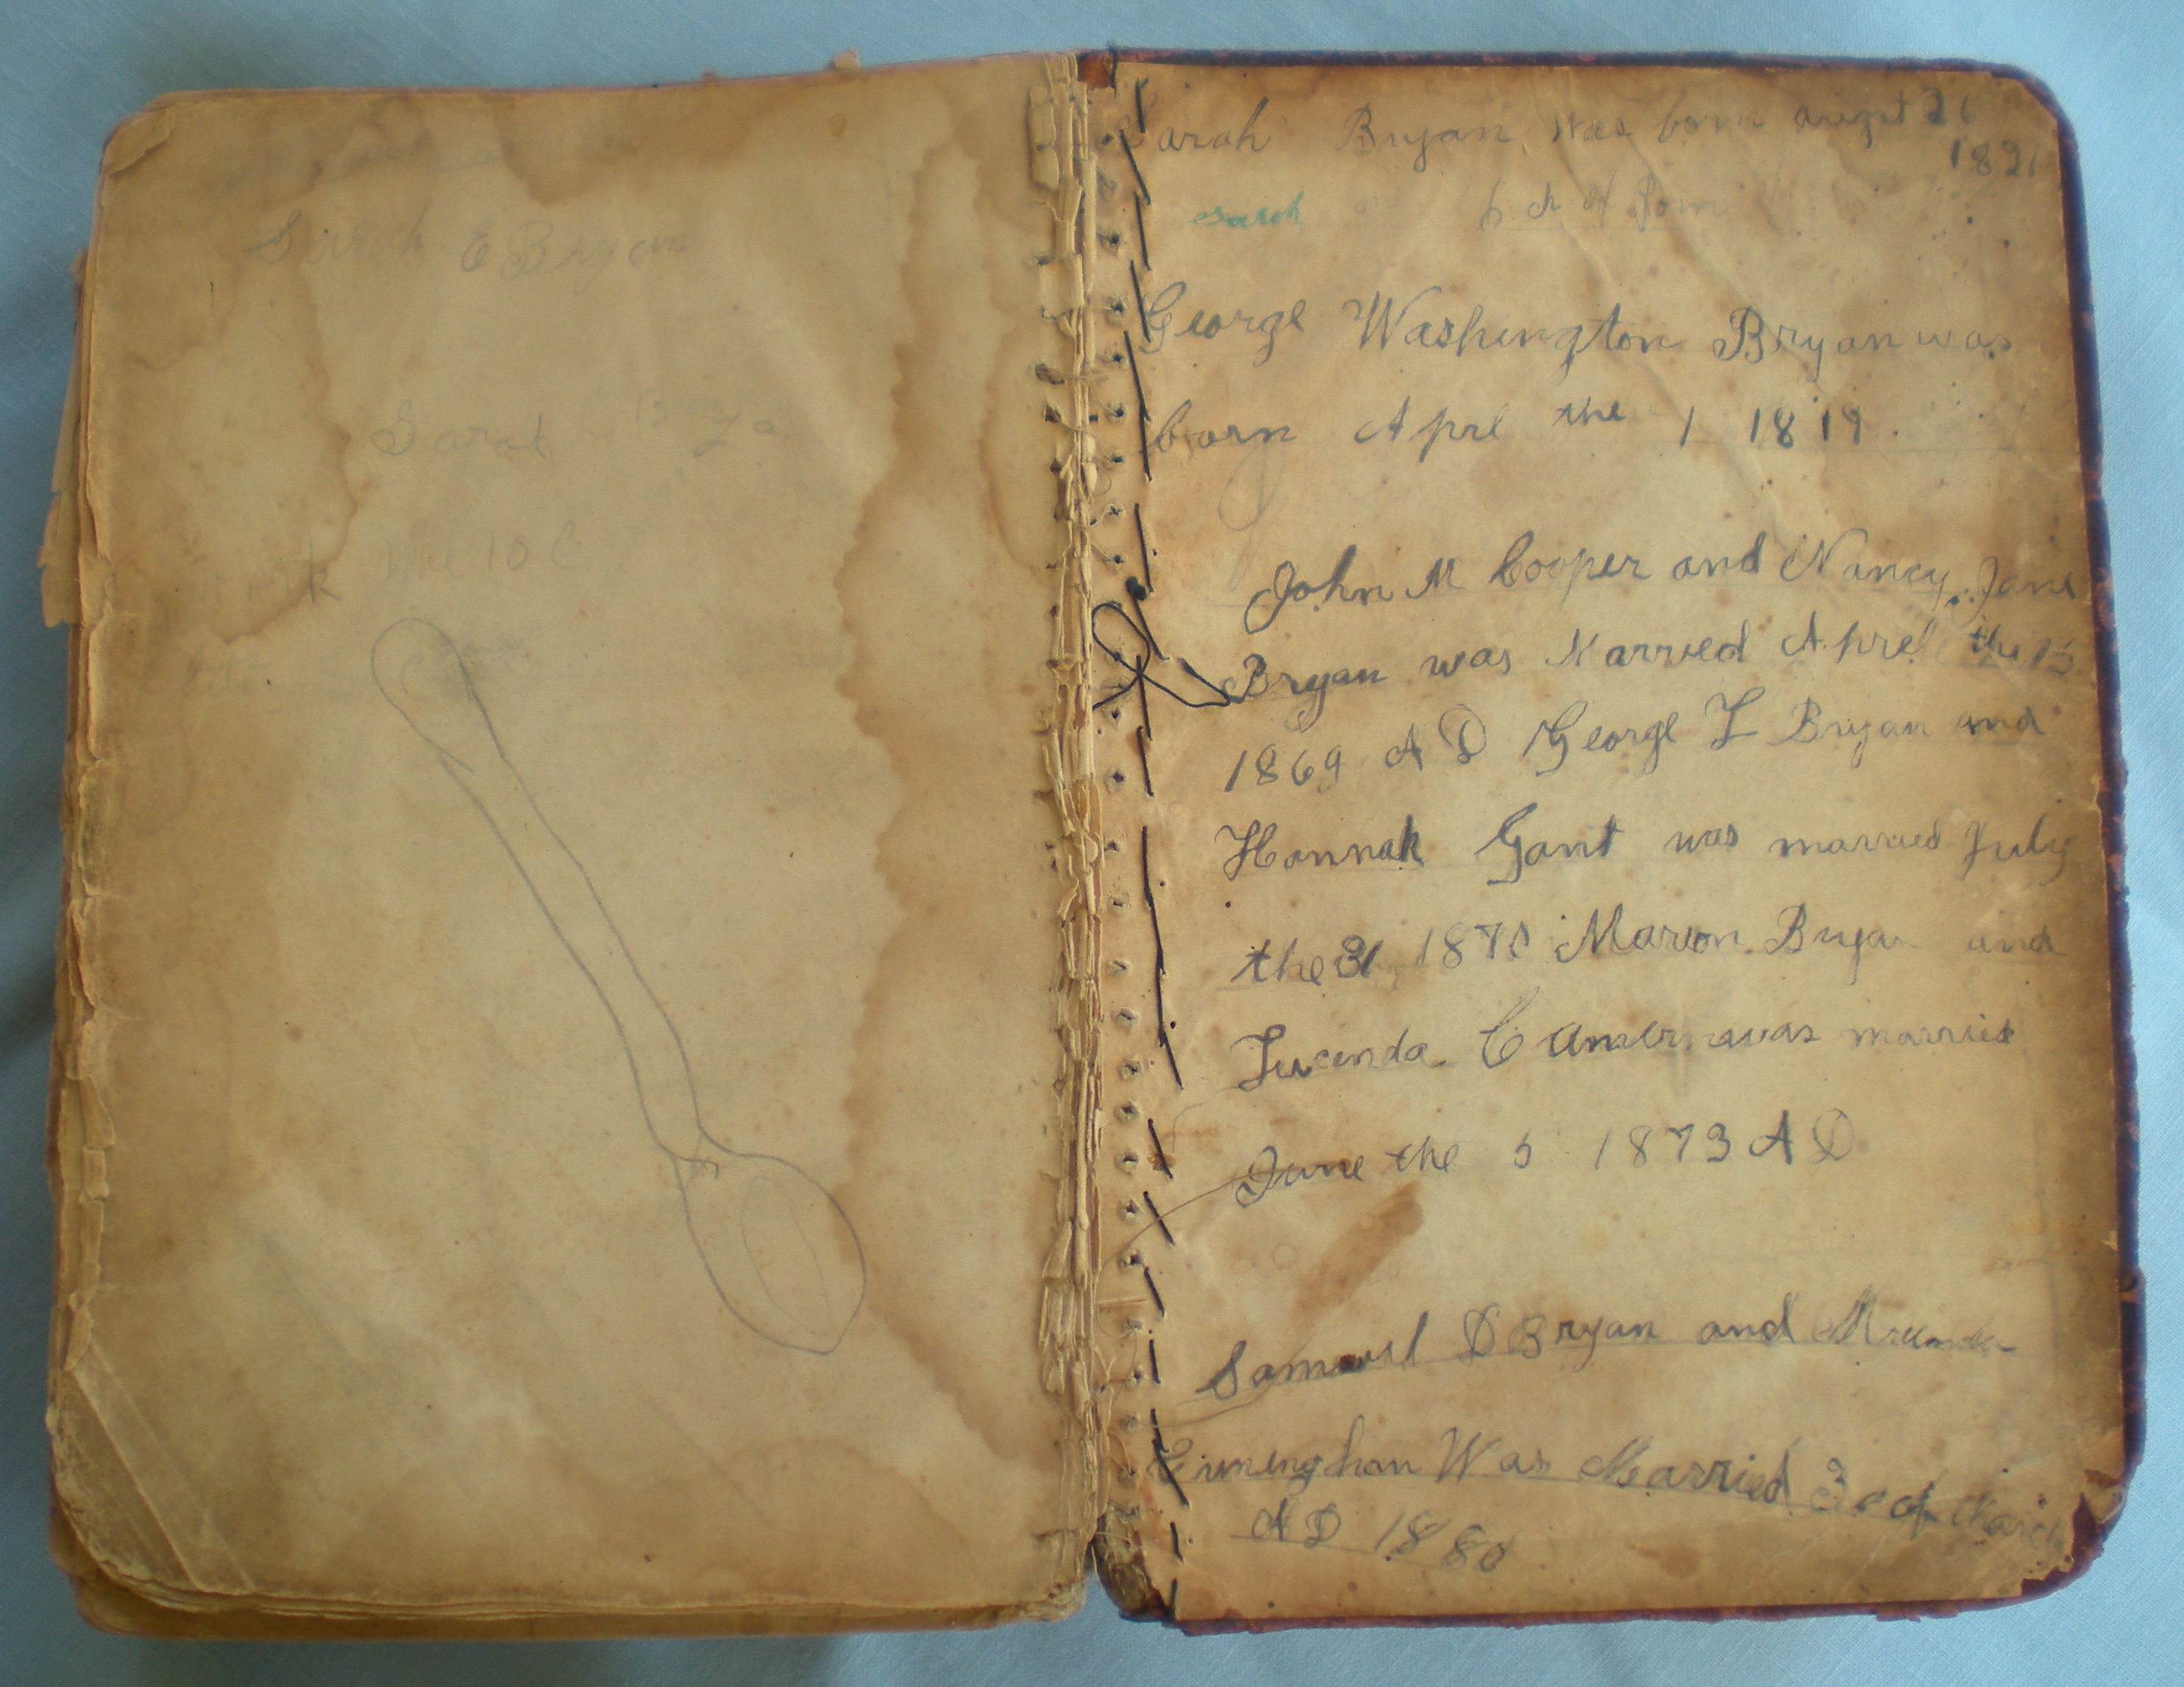 Sarah E Bryan
Sarah
Sarah Bryan was born augst 26
1821
sarah
George Washington Bryan was
born Aprl the 1 1819.
John M Cooper and Nancy Jane
Bryan was Married Aprel the 15
1869 A D George L Bryan and
Hannah Gant was married July
the 31 1870 Marion Bryan and
Lucenda C was married
June the 5 1873 A D
Samuel D Bryan and
Cuningham Was Married 3 of March
A D 1880